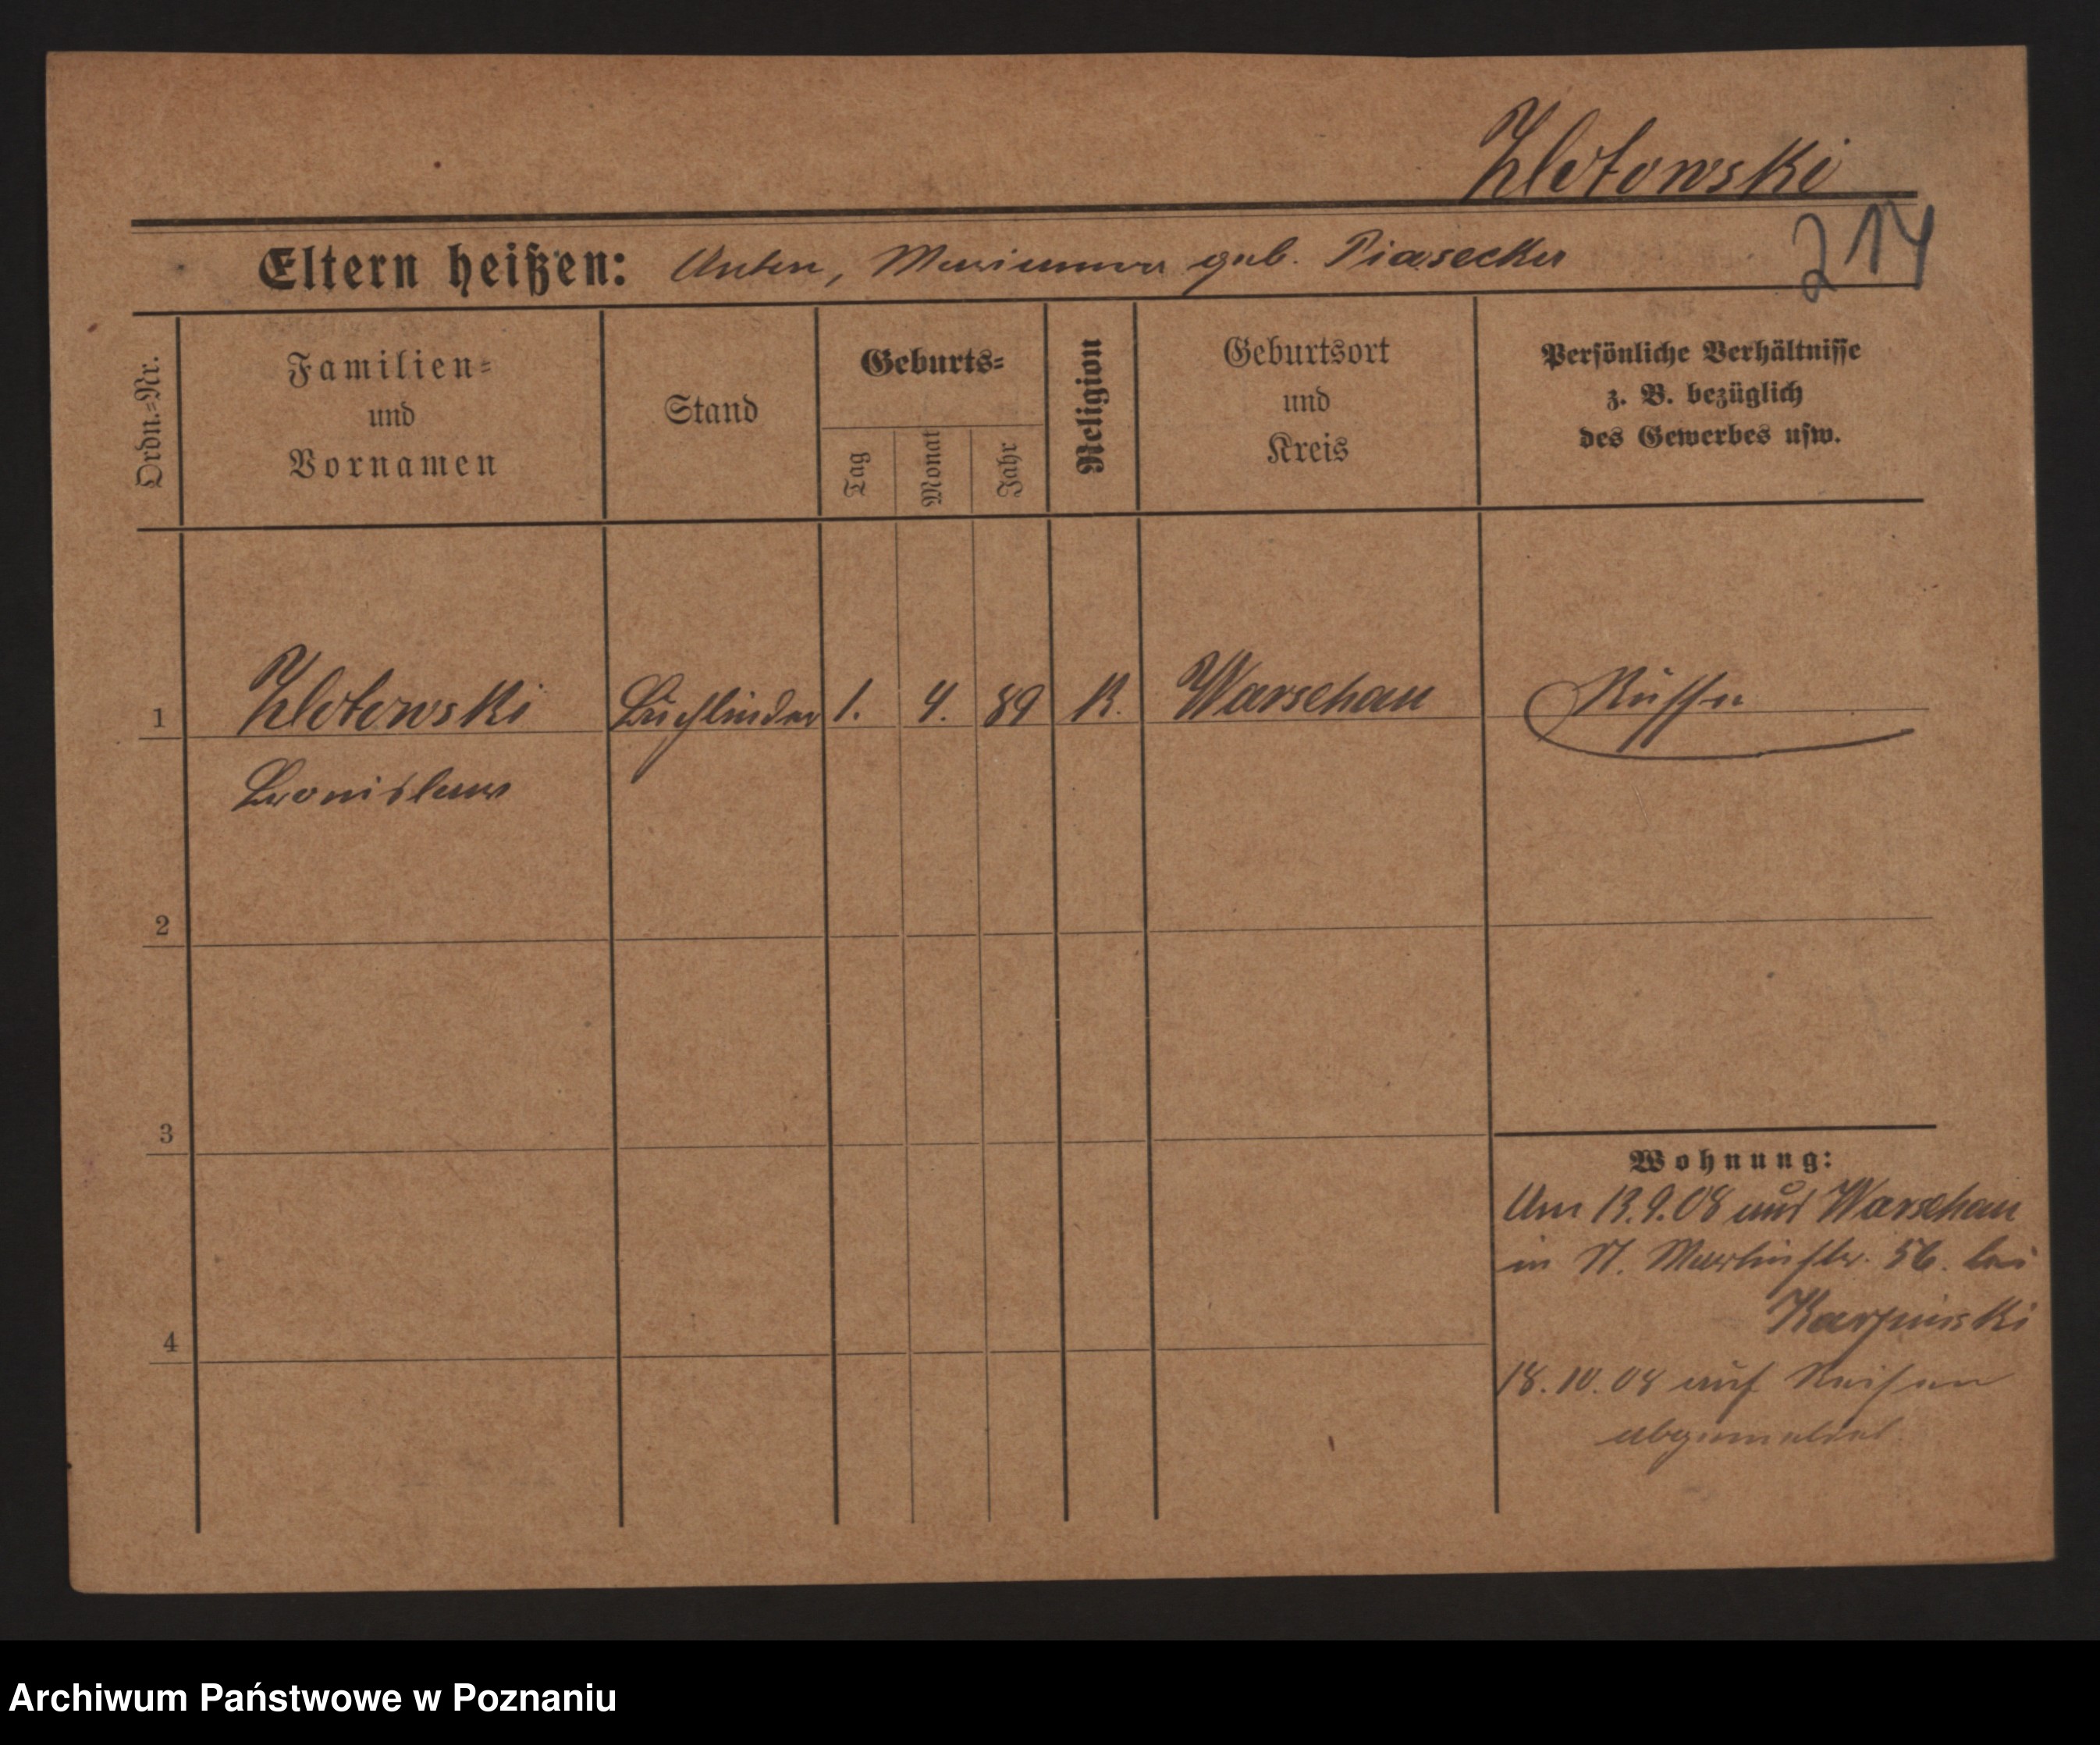 Zlotowski
214
Eltern heißen: Anton, Marianna geb. Piasecka
Ordn.=Nr.
Familien=
und
Vornamen
Stand
Geburts=
Tag
Monat
Jahr
Religion
Geburtsort
und
Kreis
Persönliche Verhältnisse
z. B. bezüglich
des Gewerbes usw.
1 Zlotowski Buchbinder 1. 4. 89 K. Warschau Russe
Bronislaus
2
3
4
Wohnung:
Am 13.9.08 aus Warschau
in St. Martinstr. 56. bei
Karpinski
18.10.08 auf Reisen
abgemeldet
Archiwum Państwowe w Poznaniu